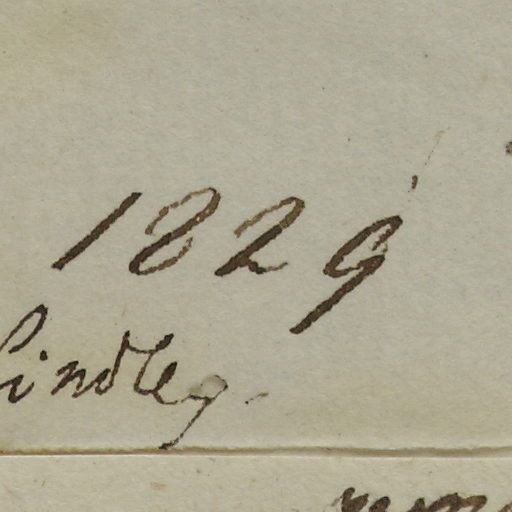 1829
Lindley